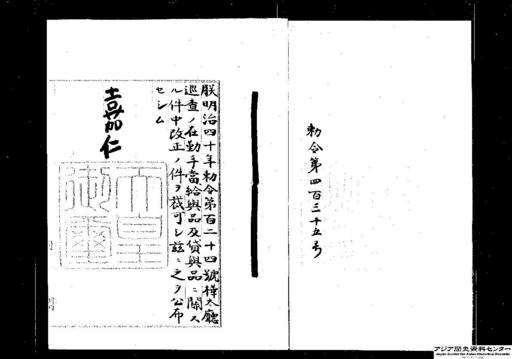 勅令第四百三十五号
朕明治四十年勅令第百二十四號樺太廳
巡査ノ在勤手當給與品及貸與品ニ關ス
ル件中改正ノ件ヲ裁可シ茲ニ之ヲ公布
セシム
嘉仁
天皇御璽
アジア歴史資料センター
Japan Center for Asian Historical Records